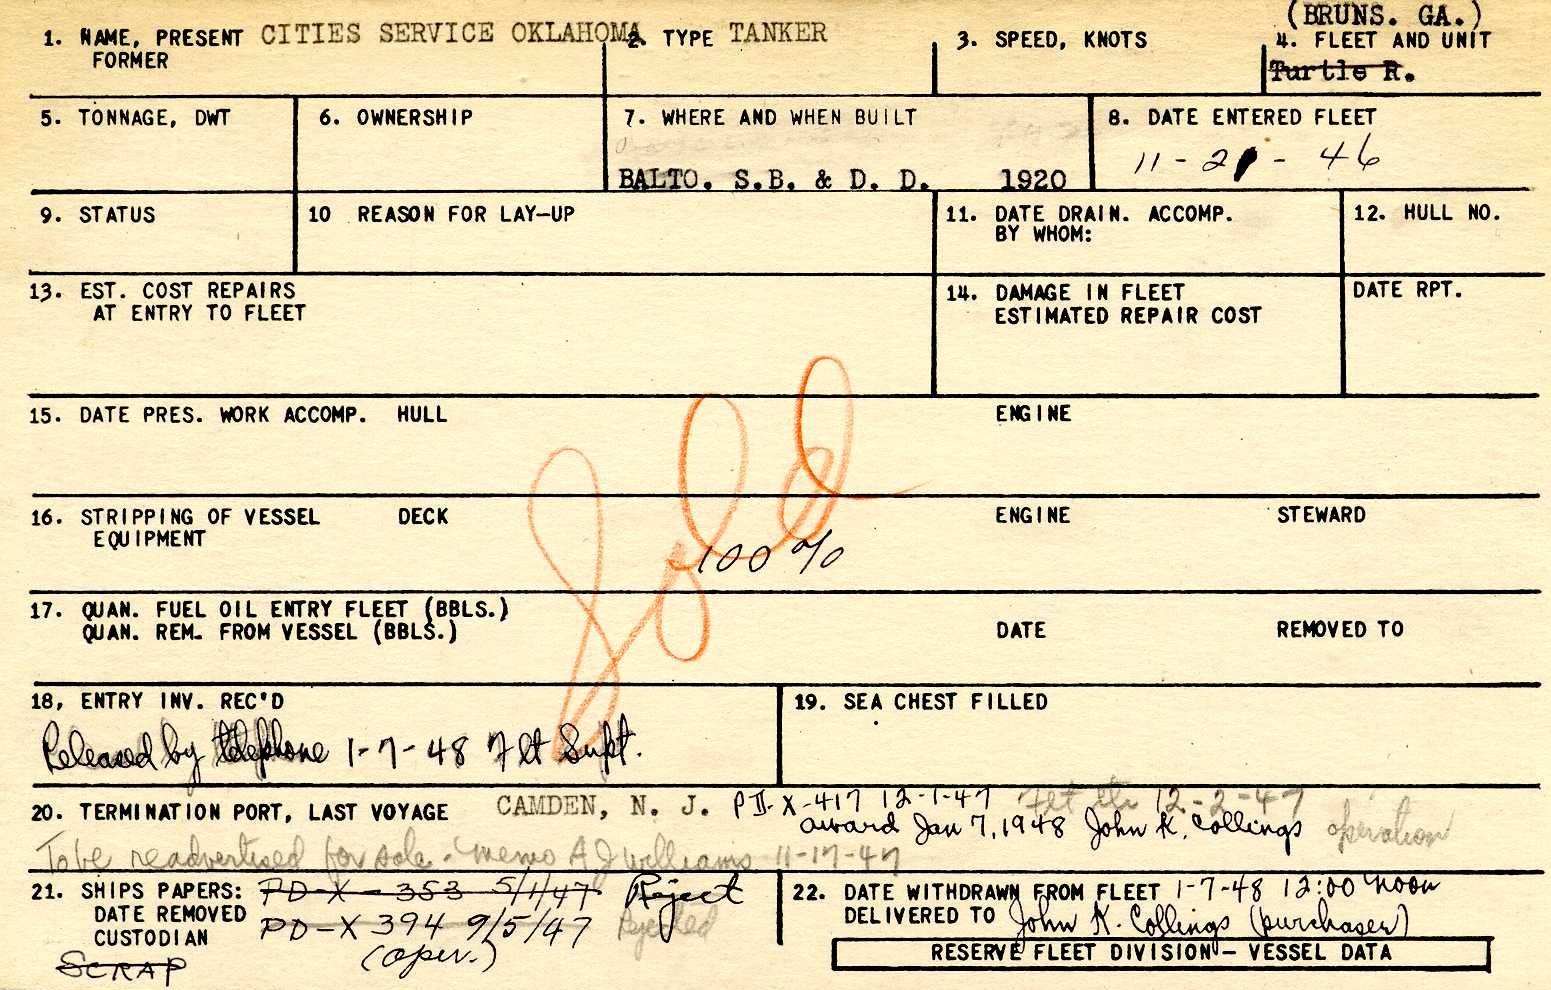 (BRUNS. GA.)
1. NAME, PRESENT CITIES SERVICE OKLAHOMA 2. TYPE TANKER 3. SPEED, KNOTS 4. FLEET AND UNIT
FORMER Turtle R.
5. TONNAGE, DWT 6. OWNERSHIP 7. WHERE AND WHEN BUILT 8. DATE ENTERED FLEET
11-21-46
BALTO. S.B. & D. D. 1920
9. STATUS 10 REASON FOR LAY-UP 11. DATE DRAIN. ACCOMP. 12. HULL NO.
BY WHOM:
13. EST. COST REPAIRS 14. DAMAGE IN FLEET DATE RPT.
AT ENTRY TO FLEET ESTIMATED REPAIR COST
15. DATE PRES. WORK ACCOMP. HULL ENGINE
Sold
16. STRIPPING OF VESSEL DECK ENGINE STEWARD
EQUIPMENT
100%
17. QUAN. FUEL OIL ENTRY FLEET (BBLS.)
QUAN. REM. FROM VESSEL (BBLS.) DATE REMOVED TO
18, ENTRY INV. REC'D 19. SEA CHEST FILLED
Released by telephone 1-7-48 Flt Supt.
20. TERMINATION PORT, LAST VOYAGE CAMDEN, N. J. PD-X-417 12-1-47 12-2-47
award Jan 7, 1948 John K. Collings operation
To be readvertised for sale - memo A J Williams 11-17-47
21. SHIPS PAPERS: PD-X-353 5/1/47 Reject 22. DATE WITHDRAWN FROM FLEET 1-7-48 12:00 noon
DATE REMOVED PD-X 394 9/5/47 Rejected DELIVERED TO John K. Collings (purchaser)
CUSTODIAN (oper.)
SCRAP
RESERVE FLEET DIVISION - VESSEL DATA